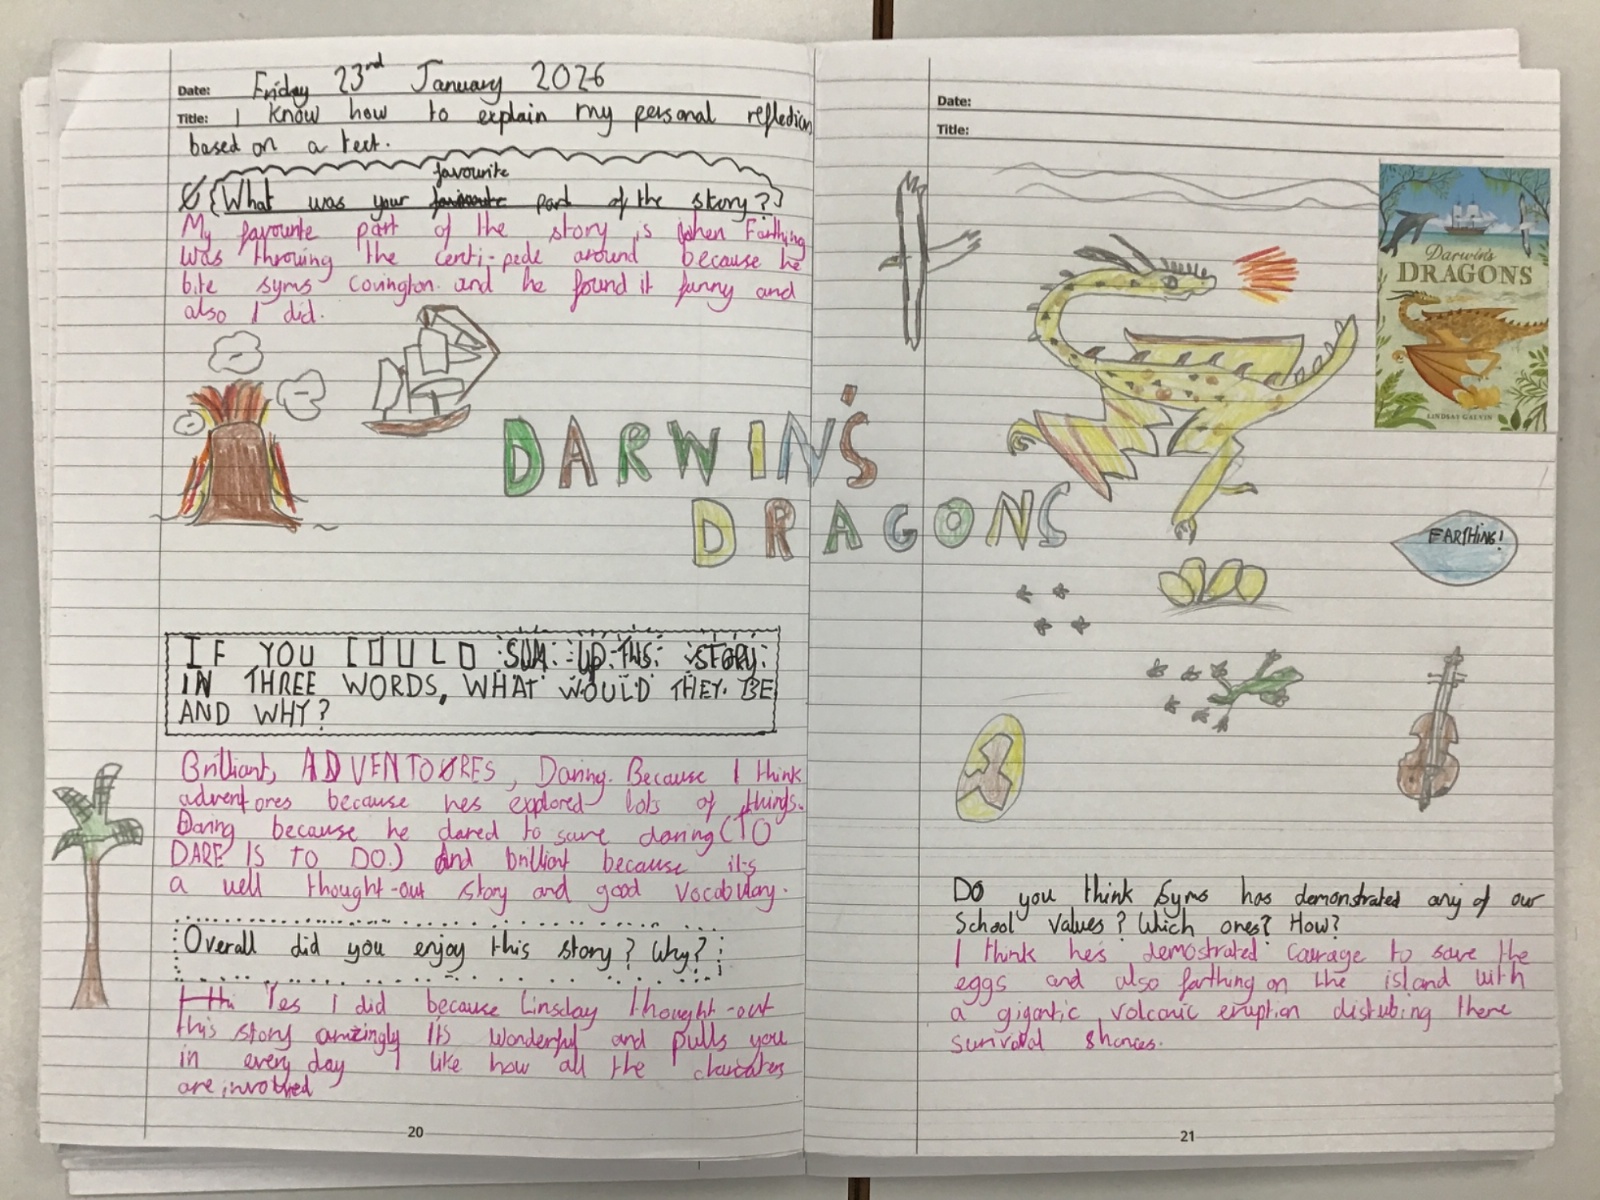 Date: Friday 23rd January 2026
Title: I know how to explain my personal reflection
based on a text.
favourite
What was your part of the story?
My favourite part of the story is when Farthing
was throwing the centi-pede around because he
bite syms Covington and he found it funny and
also I did.
DARWIN'S
DRAGONS
IF YOU COULD SUM UP THIS STORY
IN THREE WORDS, WHAT WOULD THEY BE
AND WHY?
Brilliant, ADVENTOURES, Daring. Because I think
adventores because hes explored lots of things.
Daring because he dared to save daring (TO
DARE IS TO DO.) And brilliant because it-s
a well thought-out story and good vocabulary.
Overall did you enjoy this story? Why?
Yes I did because Linsday thought-out
this story amazingly Its wonderful and pulls you
in every day I like how all the
are involved
20
Date:
Title:
Darwin's
DRAGONS
LINDSAY GALVIN
FARTHING!
Do you think Syms has demonstrated any of our
School values? Which ones? How?
I think he's demostrated Courage to save the
eggs and also farthing on the island with
a gigantic volcanic eruption distubing there
survival
21